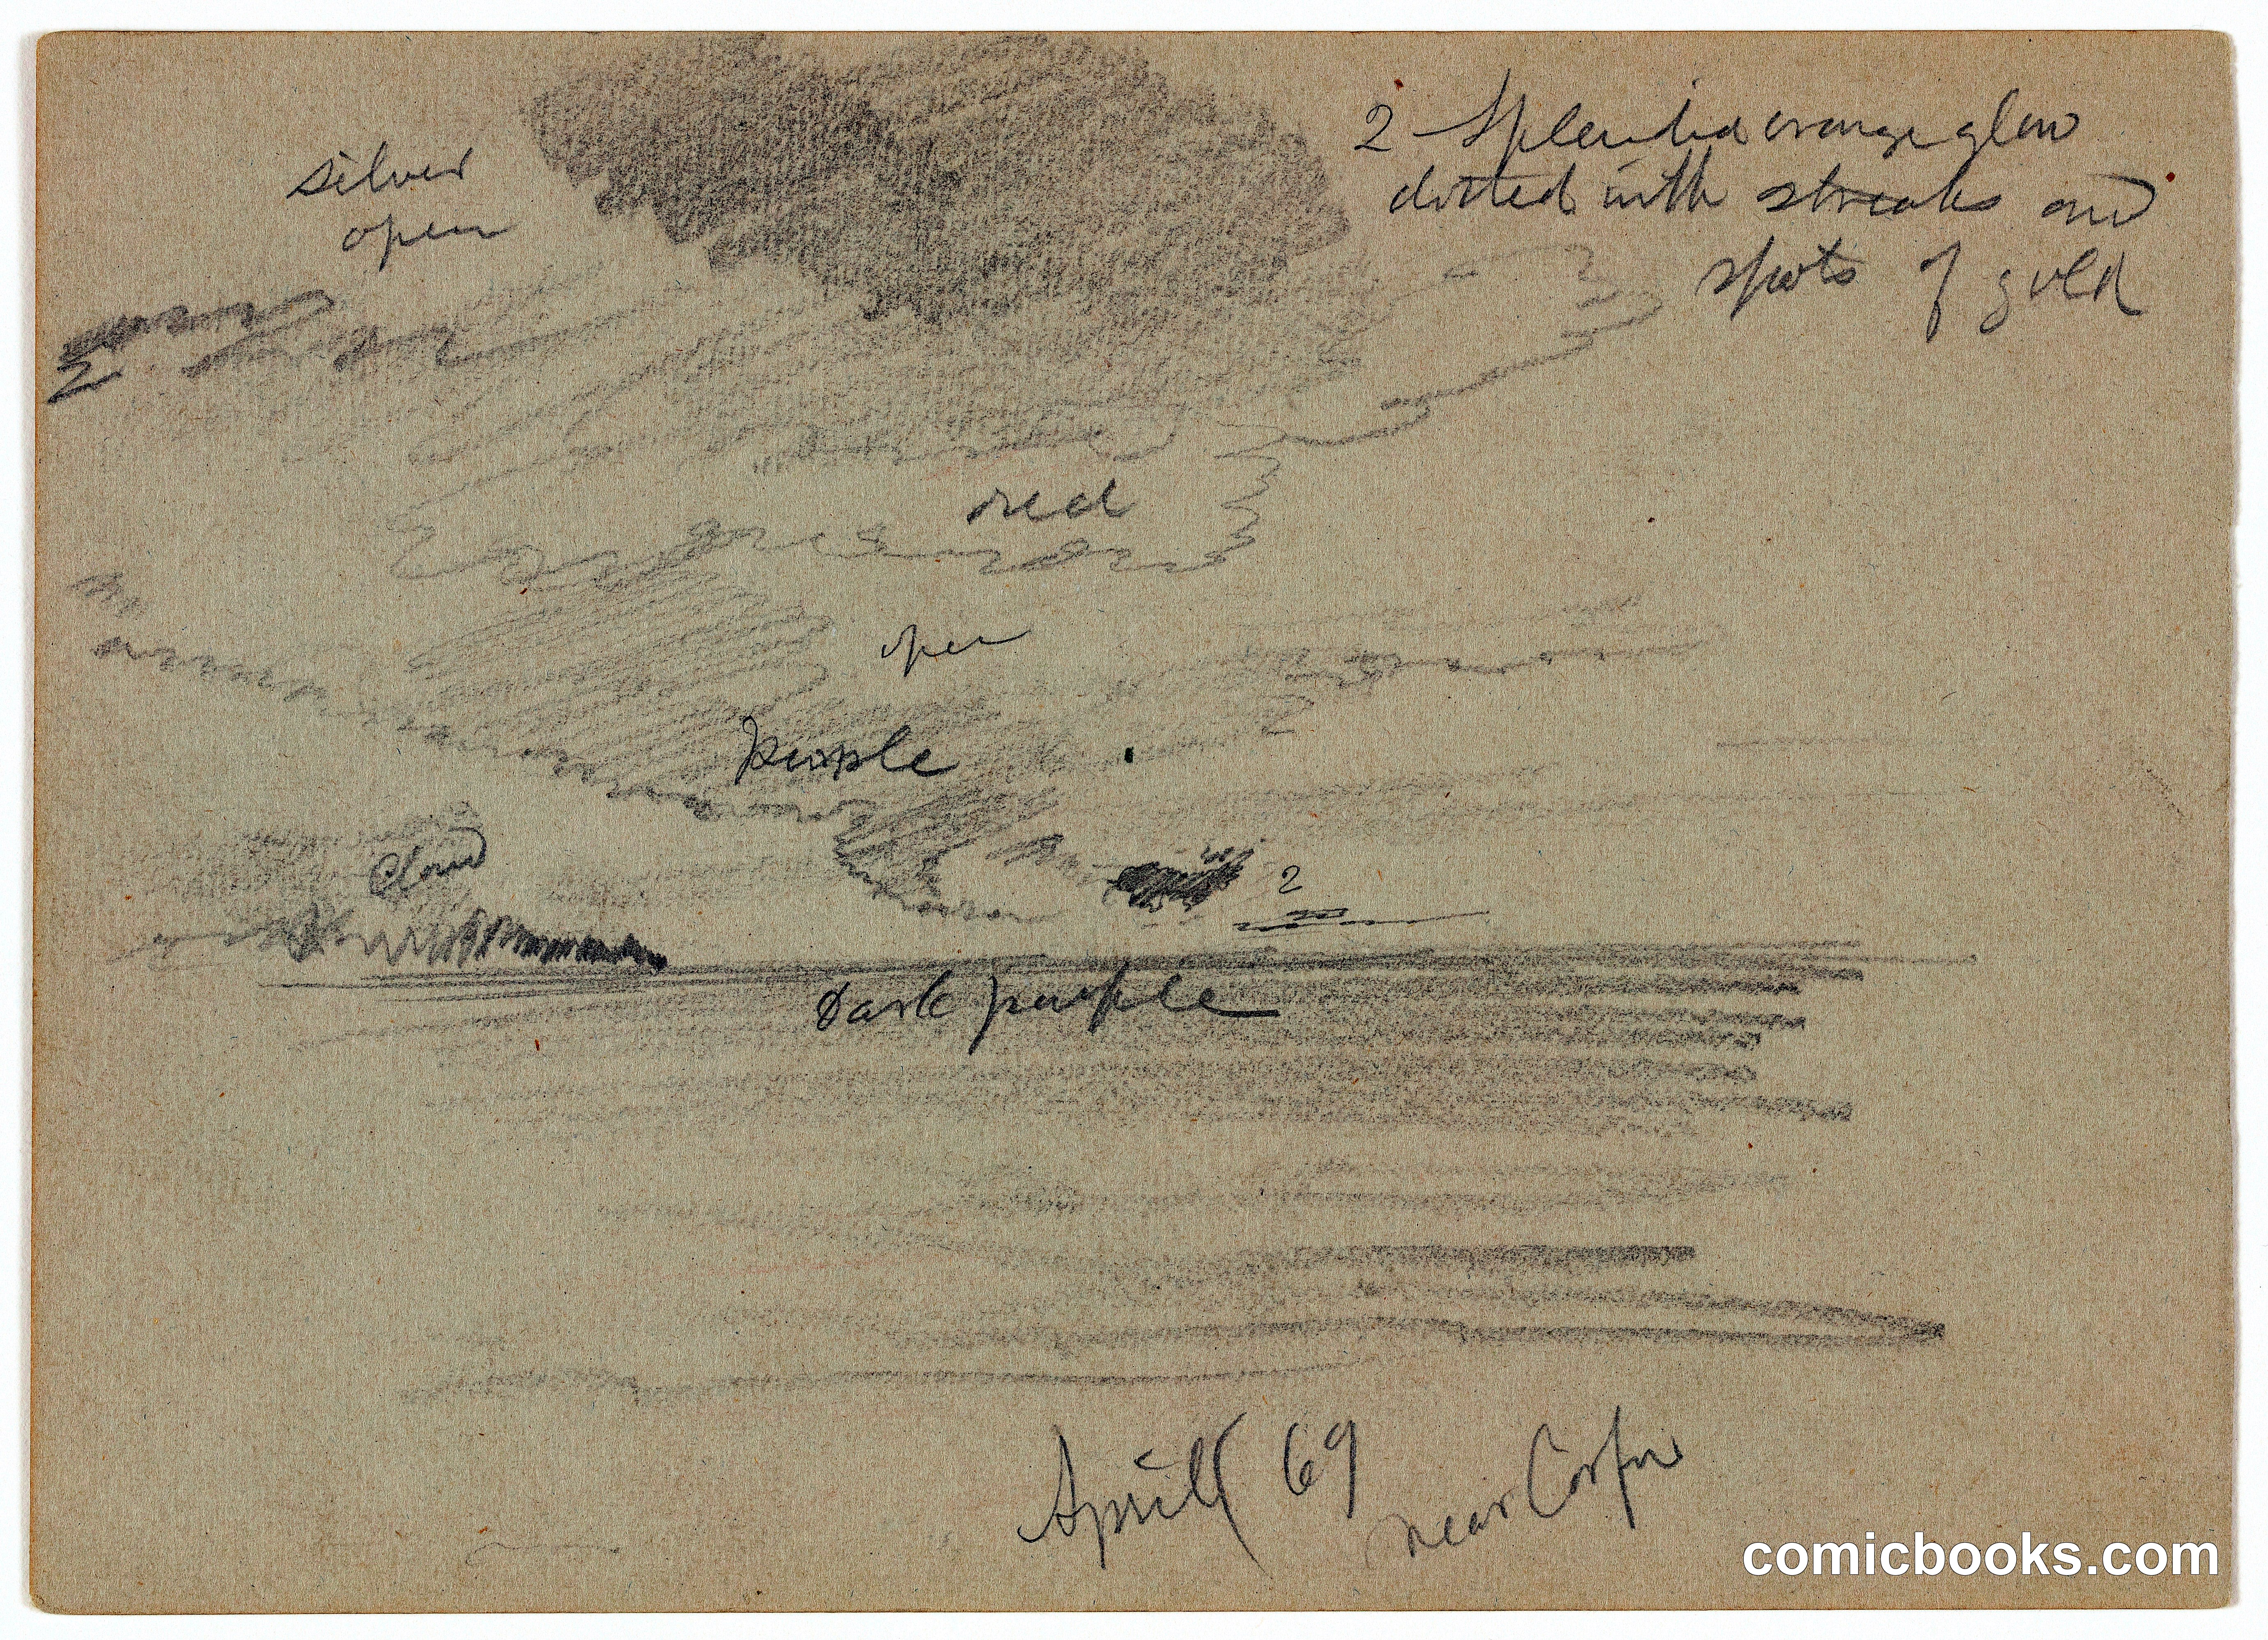 silver
open
2 Splendid orange glow
dotted with streaks and
spots of gold
red
open
purple
cloud
2
Dark purple
April 69
near Corfu
comicbooks.com